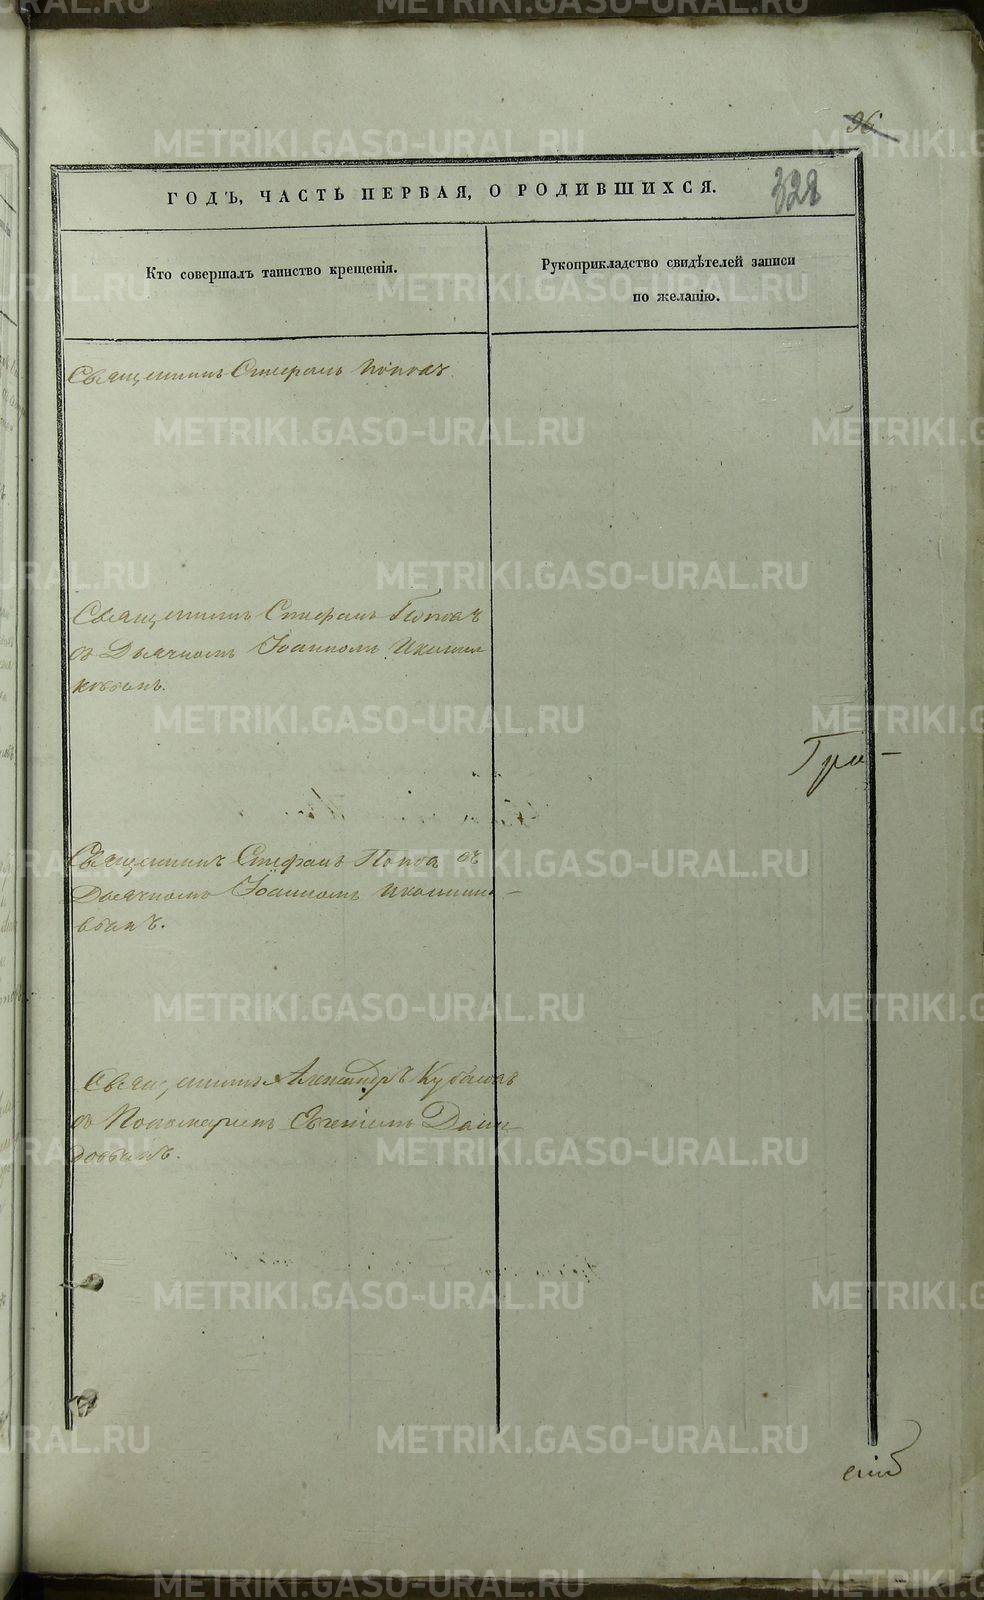 96
328
ГОДЪ, ЧАСТЬ ПЕРВАЯ, О РОДИВШИХСЯ.
Кто совершалъ таинство крещенія.
Рукоприкладство свидѣтелей записи
по желанію.
Священникъ Стефанъ Поповъ
Священникъ Стефанъ Поповъ
съ Дьячкомъ Іоанномъ Иконни
ковымъ.
Гри-
Священникъ Стефанъ Попов съ
Дьячкомъ Іоанномъ Иконни-
ковымъ.
Священникъ Александръ Кубасовъ
съ Пономаремъ Евгеніемъ Дави-
довымъ.
METRIKI.GASO-URAL.RU